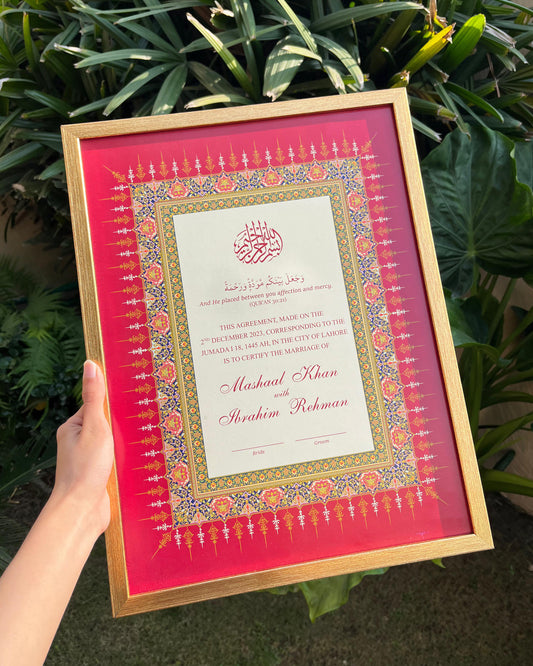 بسم الله الرحمن الرحيم
وَجَعَلَ بَيْنَكُم مَّوَدَّةً وَرَحْمَةً
And He placed between you affection and mercy.
(QUR'AN 30:21)
THIS AGREEMENT, MADE ON THE
2ND DECEMBER 2023, CORRESPONDING TO THE
JUMADA I 18, 1445 AH, IN THE CITY OF LAHORE
IS TO CERTIFY THE MARRIAGE OF
Mashaal Khan
with
Ibrahim Rehman
Bride Groom